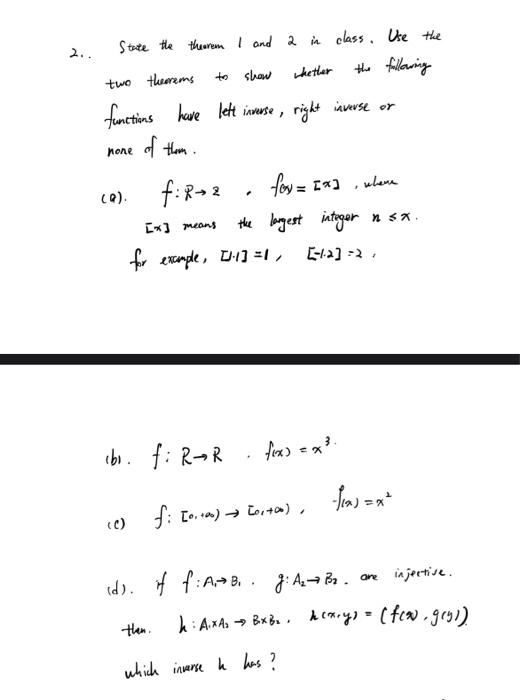 2.. State the theorem 1 and 2 in class. Use the
two theorems to show whether the following
functions have left inverse, right inverse or
none of them.
(a). f: R→2 . f(x) = [x] , where
[x] means the largest integer n ≤ x.
for example, [1.1] = 1, [-1.2] = 2,
(b). f: R→R . f(x) = x³.
(c) f: [0,+∞) → [0,+∞), f(x) = x²
(d). if f: A₁→B₁. g: A₂→B₂. are injective.
then. h: A₁×A₂ → B₁×B₂. h(x,y) = (f(x), g(y))
which inverse h has?